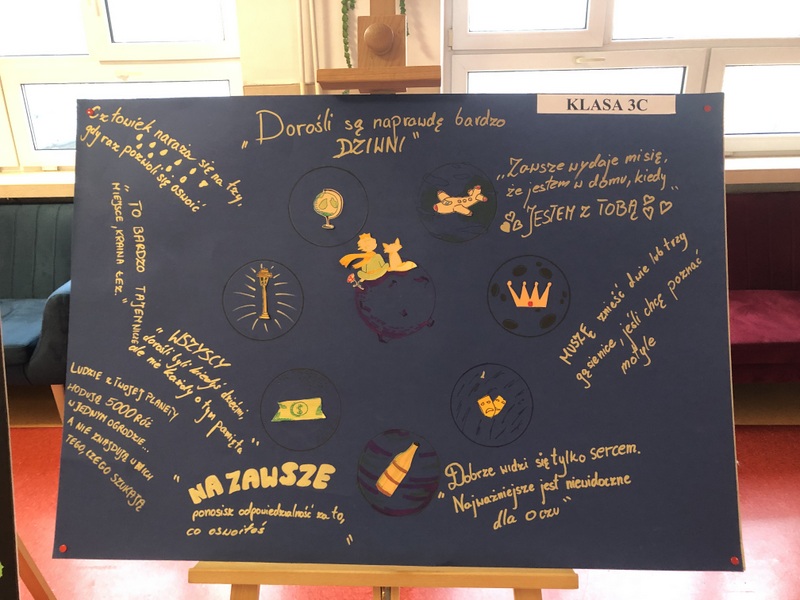 KLASA 3C
„Dorośli są naprawdę bardzo
DZIWNI"
Człowiek naraża się na łzy,
gdy raz pozwoli się oswoić
„Zawsze wydaje mi się,
że jestem w domu, kiedy
JESTEM z TOBĄ"
„TO BARDZO TAJEMNICZE
MIEJSCE, KRAINA ŁEZ."
MUSZĘ znieść dwie lub trzy
gąsienice, jeśli chcę poznać
motyle
WSZYSCY
„dorośli byli kiedyś dziećmi,
ale nie każdy o tym pamięta"
LUDZIE z TWOJEJ PLANETY
HODUJĄ 5000 RÓŻ
W JEDNYM OGRODZIE...
A NIE ZNAJDUJĄ W NICH
TEGO, CZEGO SZUKAJĄ
„NA ZAWSZE
ponosisz odpowiedzialność za to,
co oswoiłeś"
„Dobrze widzi się tylko sercem.
Najważniejsze jest niewidoczne
dla oczu"